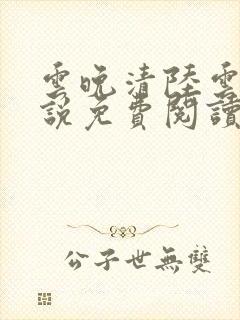 雲晚清陸雲
說免費閱讀
公子世無雙